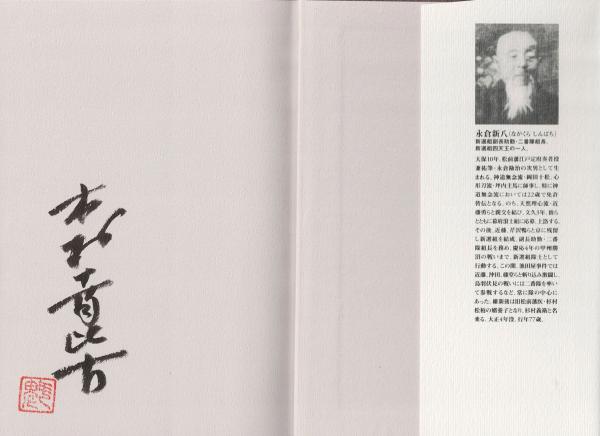 永倉新八(ながくら しんぱち)
新選組副長助勤・二番隊組長。
新選組四天王の一人。
天保10年、松前藩江戸定府奏者役
兼祐筆・永倉勘治の次男として生
まれる。神道無念流・岡田十松、心
形刀流・坪内主馬に師事し、特に神
道無念流においては22歳で免許
皆伝となる。のち、天然理心流・近
藤勇らと親交を結び、文久3年、勇ら
とともに幕府浪士組に応募、上洛する。
その後、近藤、芹沢鴨らと京に残留
し新選組を結成。副長助勤・二番
隊長を務め、慶応4年の甲州勝
沼の戦いまで、新選組隊士として
行動する。この間、池田屋事件では
近藤、沖田、藤堂らと斬り込み激闘し、
鳥羽伏見の戦いには二番隊を率い
て参戦するなど、常に隊の中心に
あった。維新後は旧松前藩医・杉村
松柏の婿養子となり、杉村義衛と名
乗る。大正4年没。行年77歳。